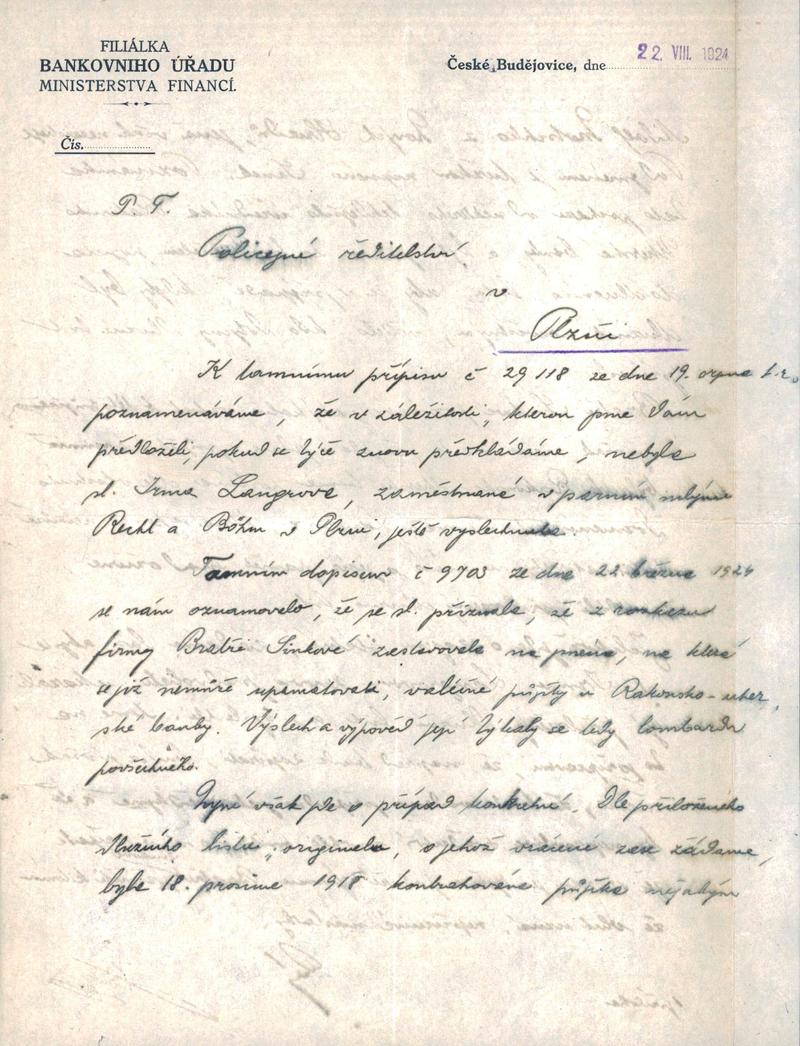 FILIÁLKA
BANKOVNIHO ÚŘADU
MINISTERSTVA FINANCÍ.
České Budějovice, dne 22. VIII. 1924
Čís.
P. T.
Policejné ředitelství
v
Plzni
K tamnímu přípisu č 29118 ze dne 19. srpna t. r.
poznamenáváme, že v záležitosti, kterou jsme Vám
předložili, pokud se týče znovu předkládáme, nebyla
sl. Irma Langrova, zaměstnané v parním mlýně
Rechl a Böhm v Plzni, ještě vyslechnuta.
Tamním dopisem č 9703 ze dne 22 března 1924
se nám oznamovalo, že se sl. přiznala, že z rozkazu
firmy Bratři Sinkové zastavovala na jména, na která
se již nemůže upamatovati, válečné půjčky u Rakousko-uher
ské banky. Výslech a výpověd její týkaly se tedy lombardu
povšechného.
Nyní však jde o případ konkretné. Dle přiloženého
dlužního lístku, originelu, o jehož vrácené zase žádáme,
byla 18. prosince 1918 kontrahována půjčka nějakým